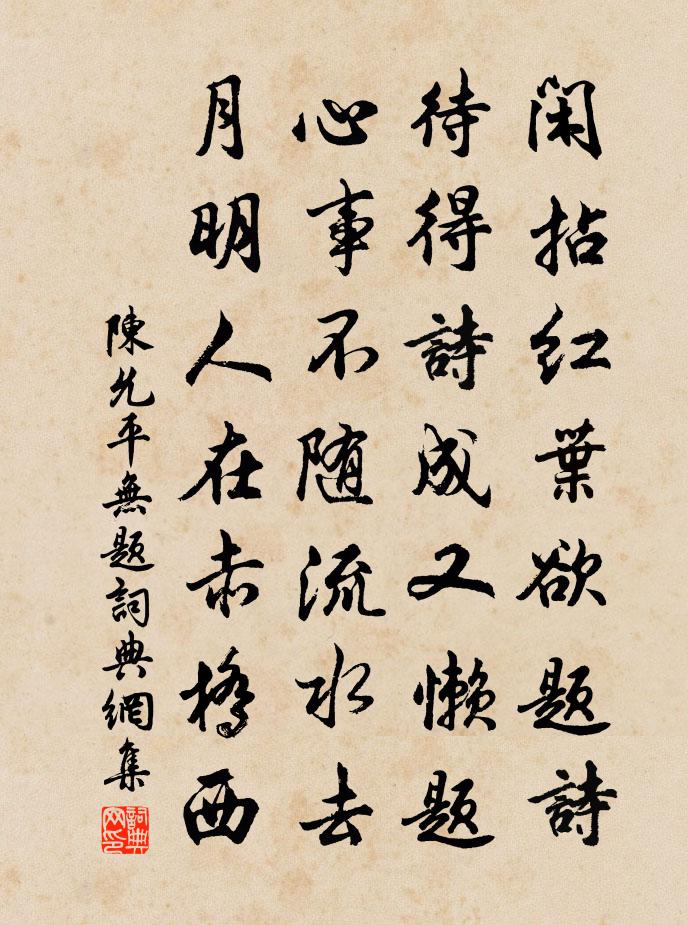 閑拈紅葉欲題詩
待得詩成又懶題
心事不随流水去
月明人在赤橋西
陳允平無題詞典網集
詞典網印